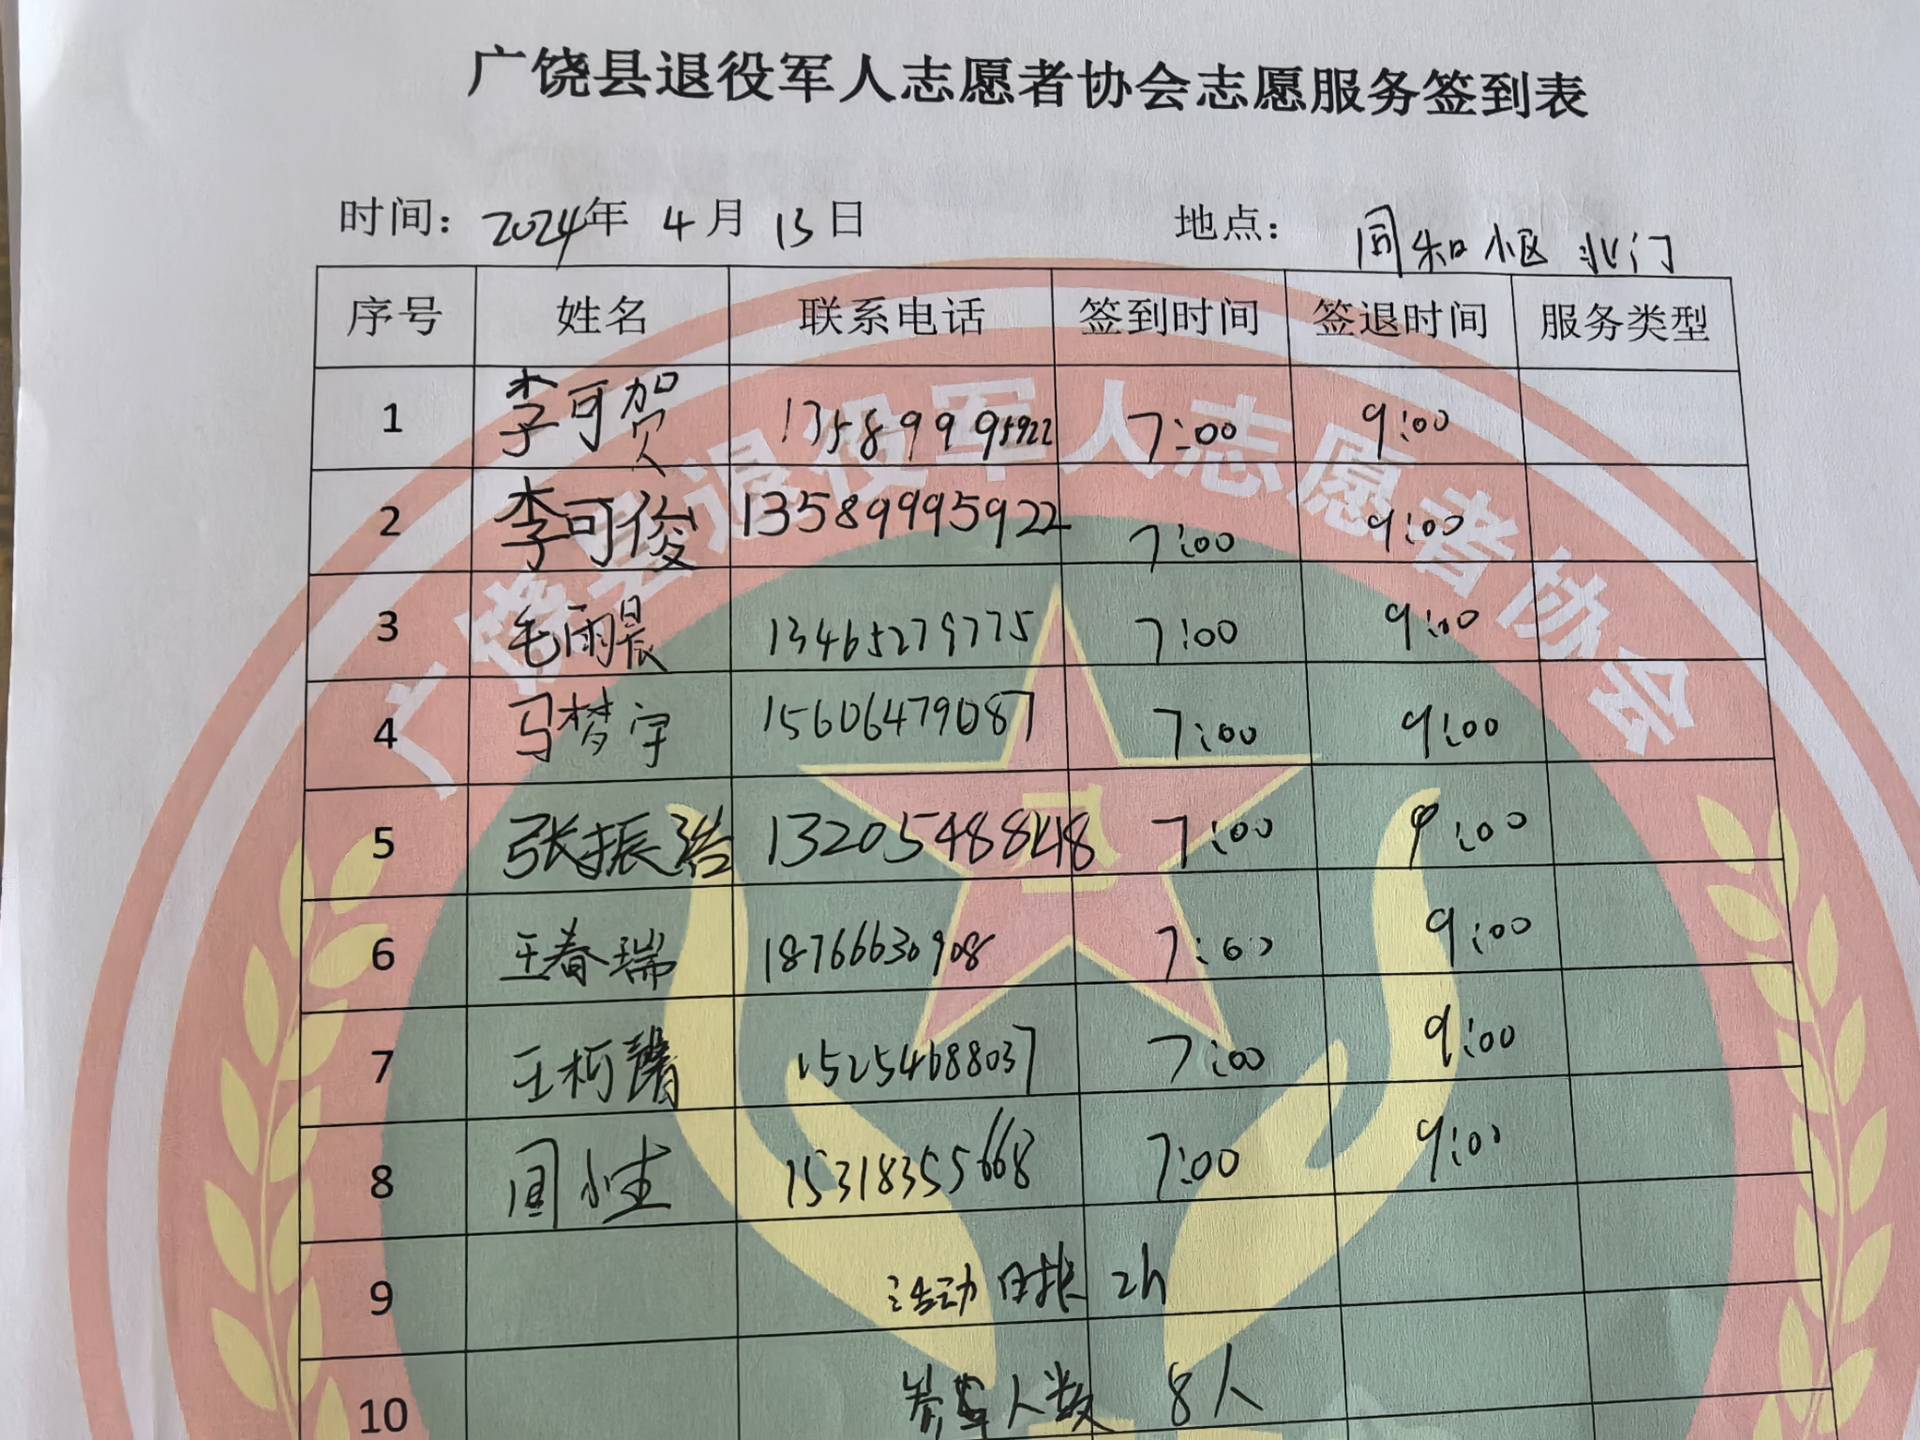 广饶县退役军人志愿者协会志愿服务签到表
时间: 2024年 4月 13日 地点: 同和小区北门
序号 姓名 联系电话 签到时间 签退时间 服务类型
1 李可贺 13589995922 7:00 9:00
2 李可俊 13589995922 7:00 9:00
3 毛雨晨 13465279775 7:00 9:00
4 马梦宇 15606479087 7:00 9:00
5 张振浩 13205488848 7:00 9:00
6 王春瑞 18766630908 7:00 9:00
7 王柯 15254688037 7:00 9:00
8 15318355668 7:00 9:00
9 活动时长 2h
10 人数 8人
广饶县退役军人志愿者协会